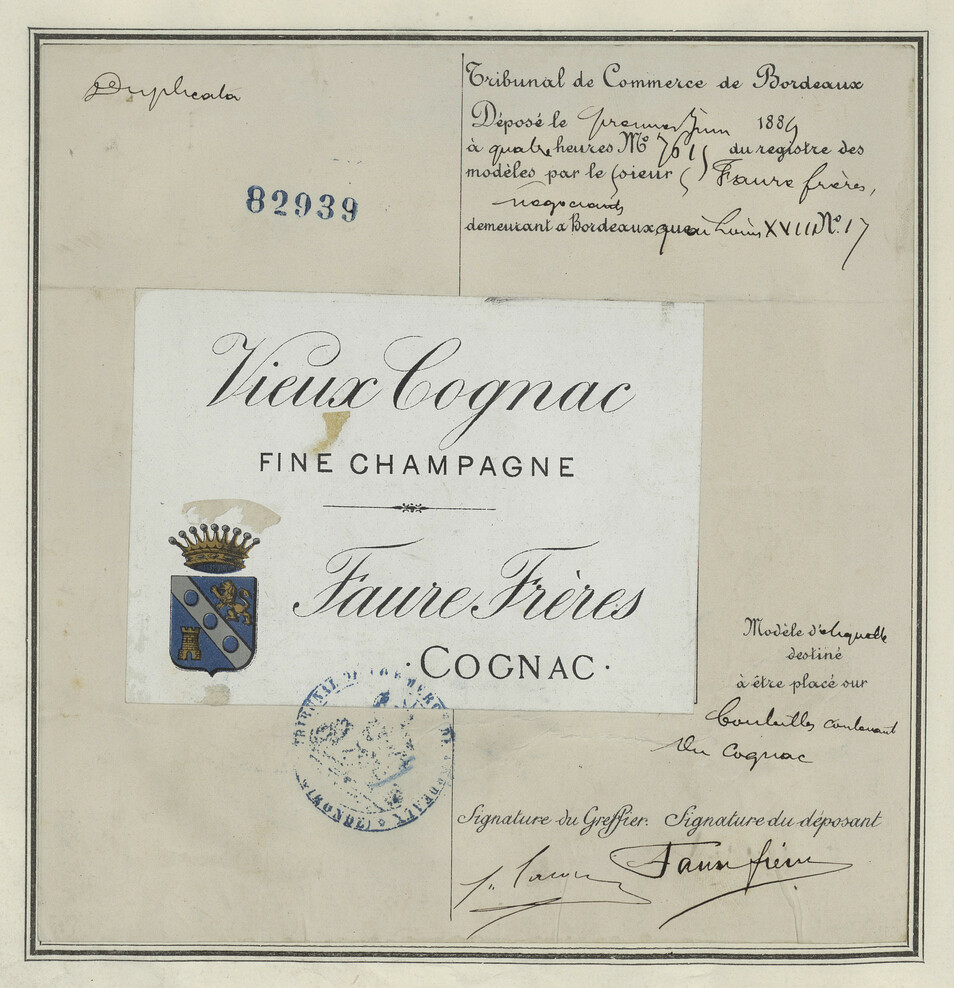 Duplicata
82939
Tribunal de Commerce de Bordeaux
Déposé le premier Juin 1889
à quatre heures No 7615 du registre des
modèles par le sieur Faure frères,
négociants
demeurant à Bordeaux, quai Louis XVIII No. 17
Vieux Cognac
FINE CHAMPAGNE
Faure Frères
·COGNAC·
Modèle d'étiquette
destiné
à être placé sur
bouteilles contenant
du Cognac
TRIBUNAL DE COMMERCE DE BORDEAUX
(GIRONDE)
Signature du Greffier. Signature du déposant
Faure frères